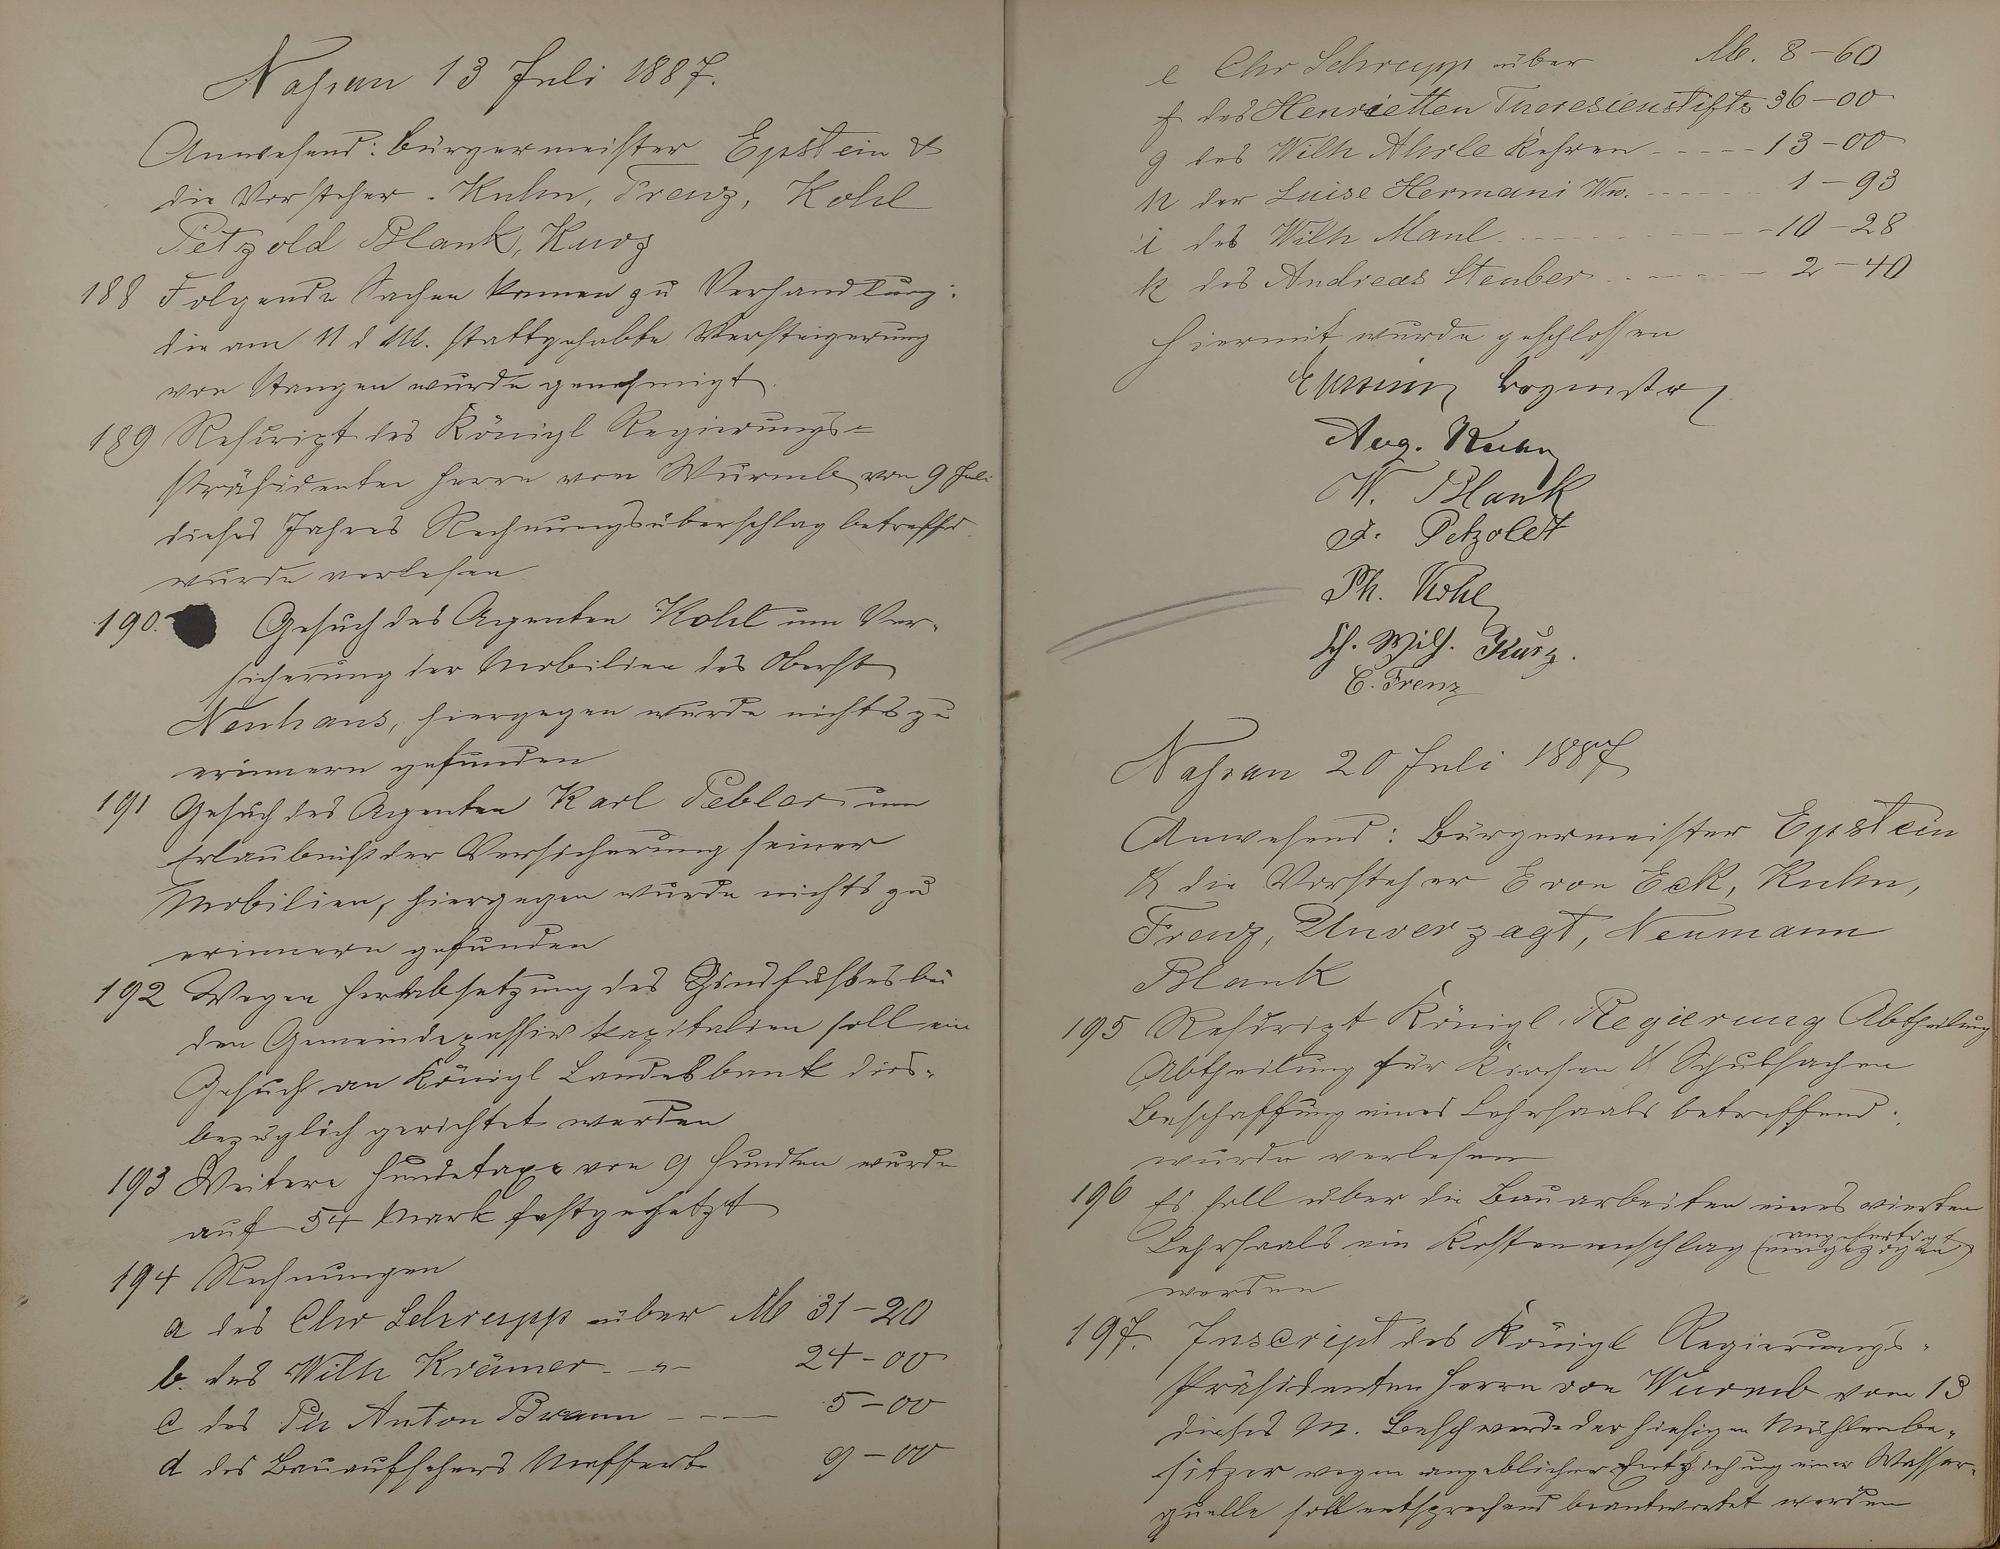 Nassau 13 Juli 1887.
Anwesend: Bürgermeister Epstein &
die Vorsteher. Kuhn, Frenz, Kohl
Petzold Blank, Kurz
188 Folgende Sachen kamen zu Verhandlung:
die am 11 d M. stattgehabte Versteigerung
von Stangen wurde genehmigt.
189 Rescript des Königl Regierungs=
präsidenten Herrn von Wurmb von 9 Juli
dieses Jahres Rechnungsüberschlag betreffd.
wurde verlesen
190. Gesuch des Agenten Kohl um Ver-
sicherung der Mobilien des Oberst
Neuhaus, hiergegen wurde nichts zu
erinnern gefunden
191 Gesuch des Agenten Karl Pebler um
Erlaubniß der Versicherung seiner
Mobilien, hiergegen wurde nichts zu
erinnern gefunden
192 Wegen Herabsetzung des Zinsfußes bei
den Gemeindepassivkapitalien soll ein
Gesuch an Königl Landesbank dies-
bezüglich gerichtet werden
193 Weitere Hundetaxe von 9 Hunden wurde
auf 54 Mark festgesetzt
194 Rechnungen
a des Chr Schrupp über M 31-20
b. des Wilh Krämer -"- 24-00
c des Ph Anton Braun ---- 5-00
d des Bauaufsehers Neffert 9-00
e Chr Schrupp über M. 8-60
f des Henrietten Theresienstifts 36-00
g des Wilh Ahrle Kehren ----- 13-00
h der Luise Hermani Ww. ------ 1-93
i des Wilh Maul ---------- 10-28
k des Andreas Steuber ------ 2-40
Hiermit wurde geschlossen
Epstein, Brgmstr
Aug. Kuhn
W. Blank
Petzoldt
Ph. Kohl
Wilh. Kurz.
C. Frenz
Nassau 20 Juli 1887
Anwesend: Bürgermeister Epstein
& die Vorsteher E von Eck, Kuhn,
Frenz, Unverzagt, Neumann
Blank
195 Rescript Königl. Regierung Abtheilung
Abtheilung für Kirchen & Schulsachen
Beschaffung eines Lehrsaals betreffend.
wurde verlesen
196 Es soll über die Bauarbeiten eines vierten
Lehrsaals ein Kostenanschlag (eingezogen) angefertigt
werden
197. Inscript des Königl Regierungs-
Präsidenten Herrn von Wurmb vom 13
dieses M. Beschwerde der hiesigen Mühlenbe-
sitzer wegen angeblicher Entziehung einer Wasser-
quelle soll entsprechend beantwortet werden